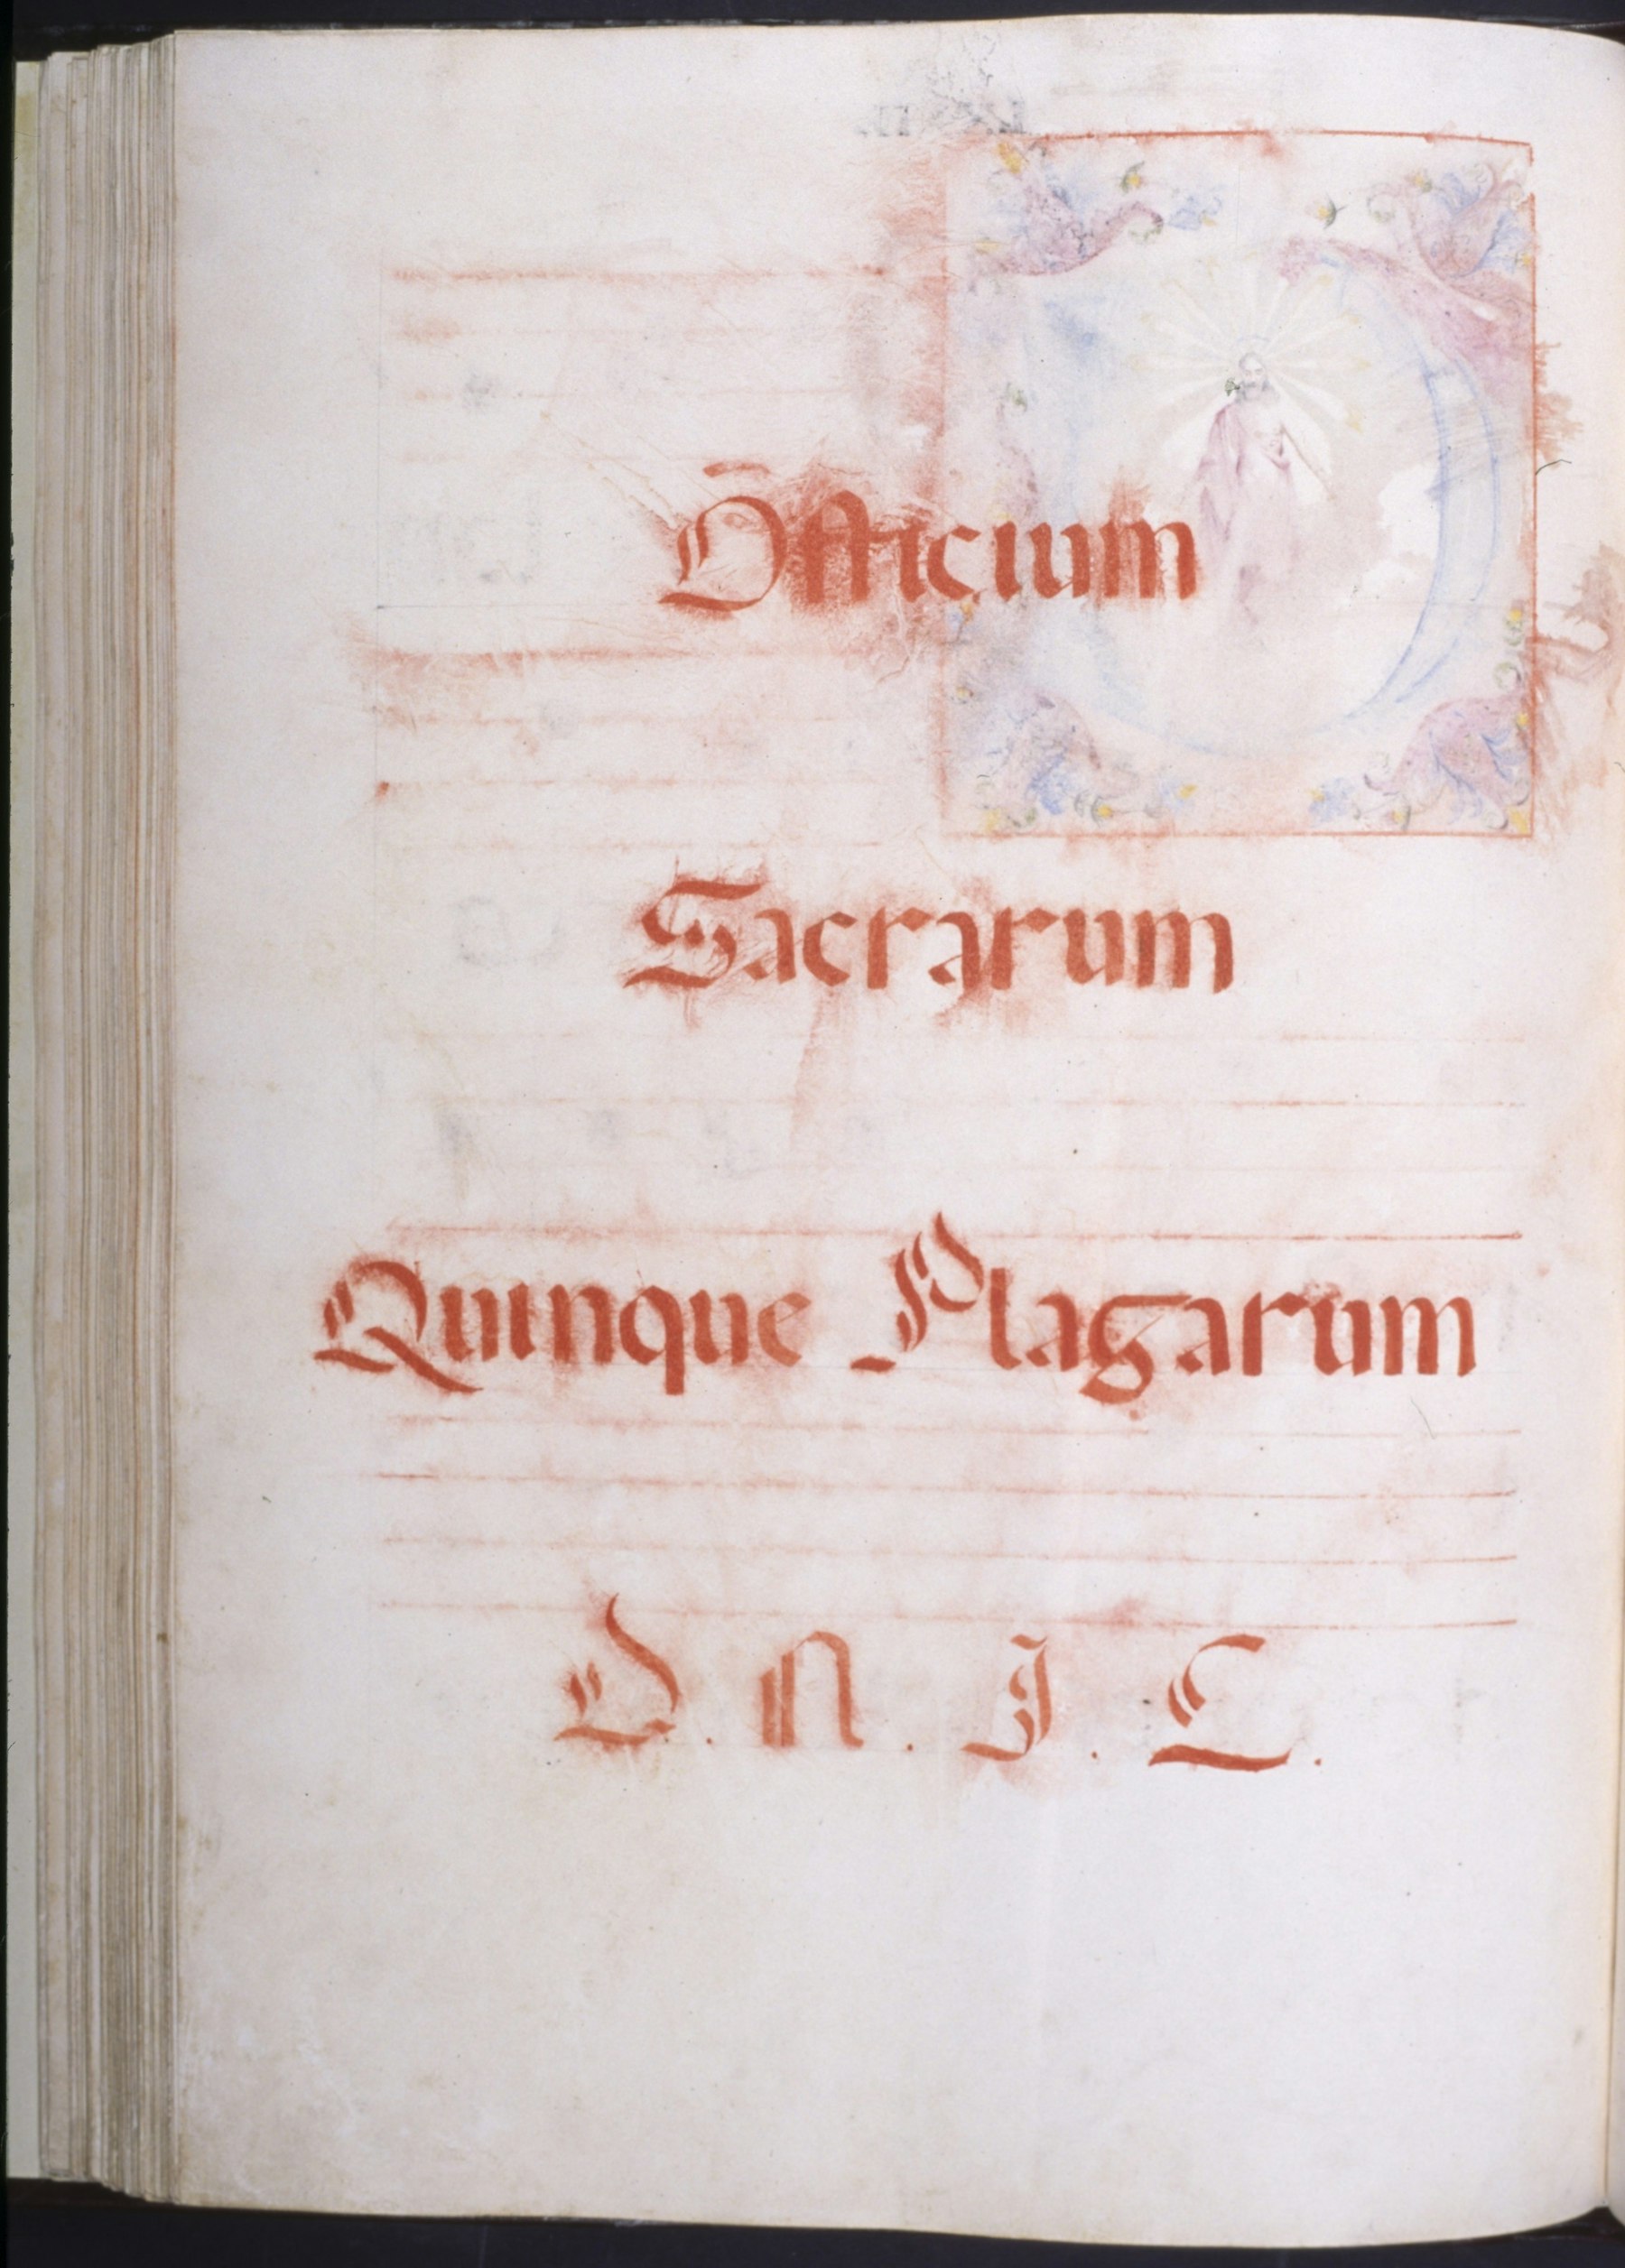 Officium
Sacrarum
Quinque Plagarum
D. N. J. C.